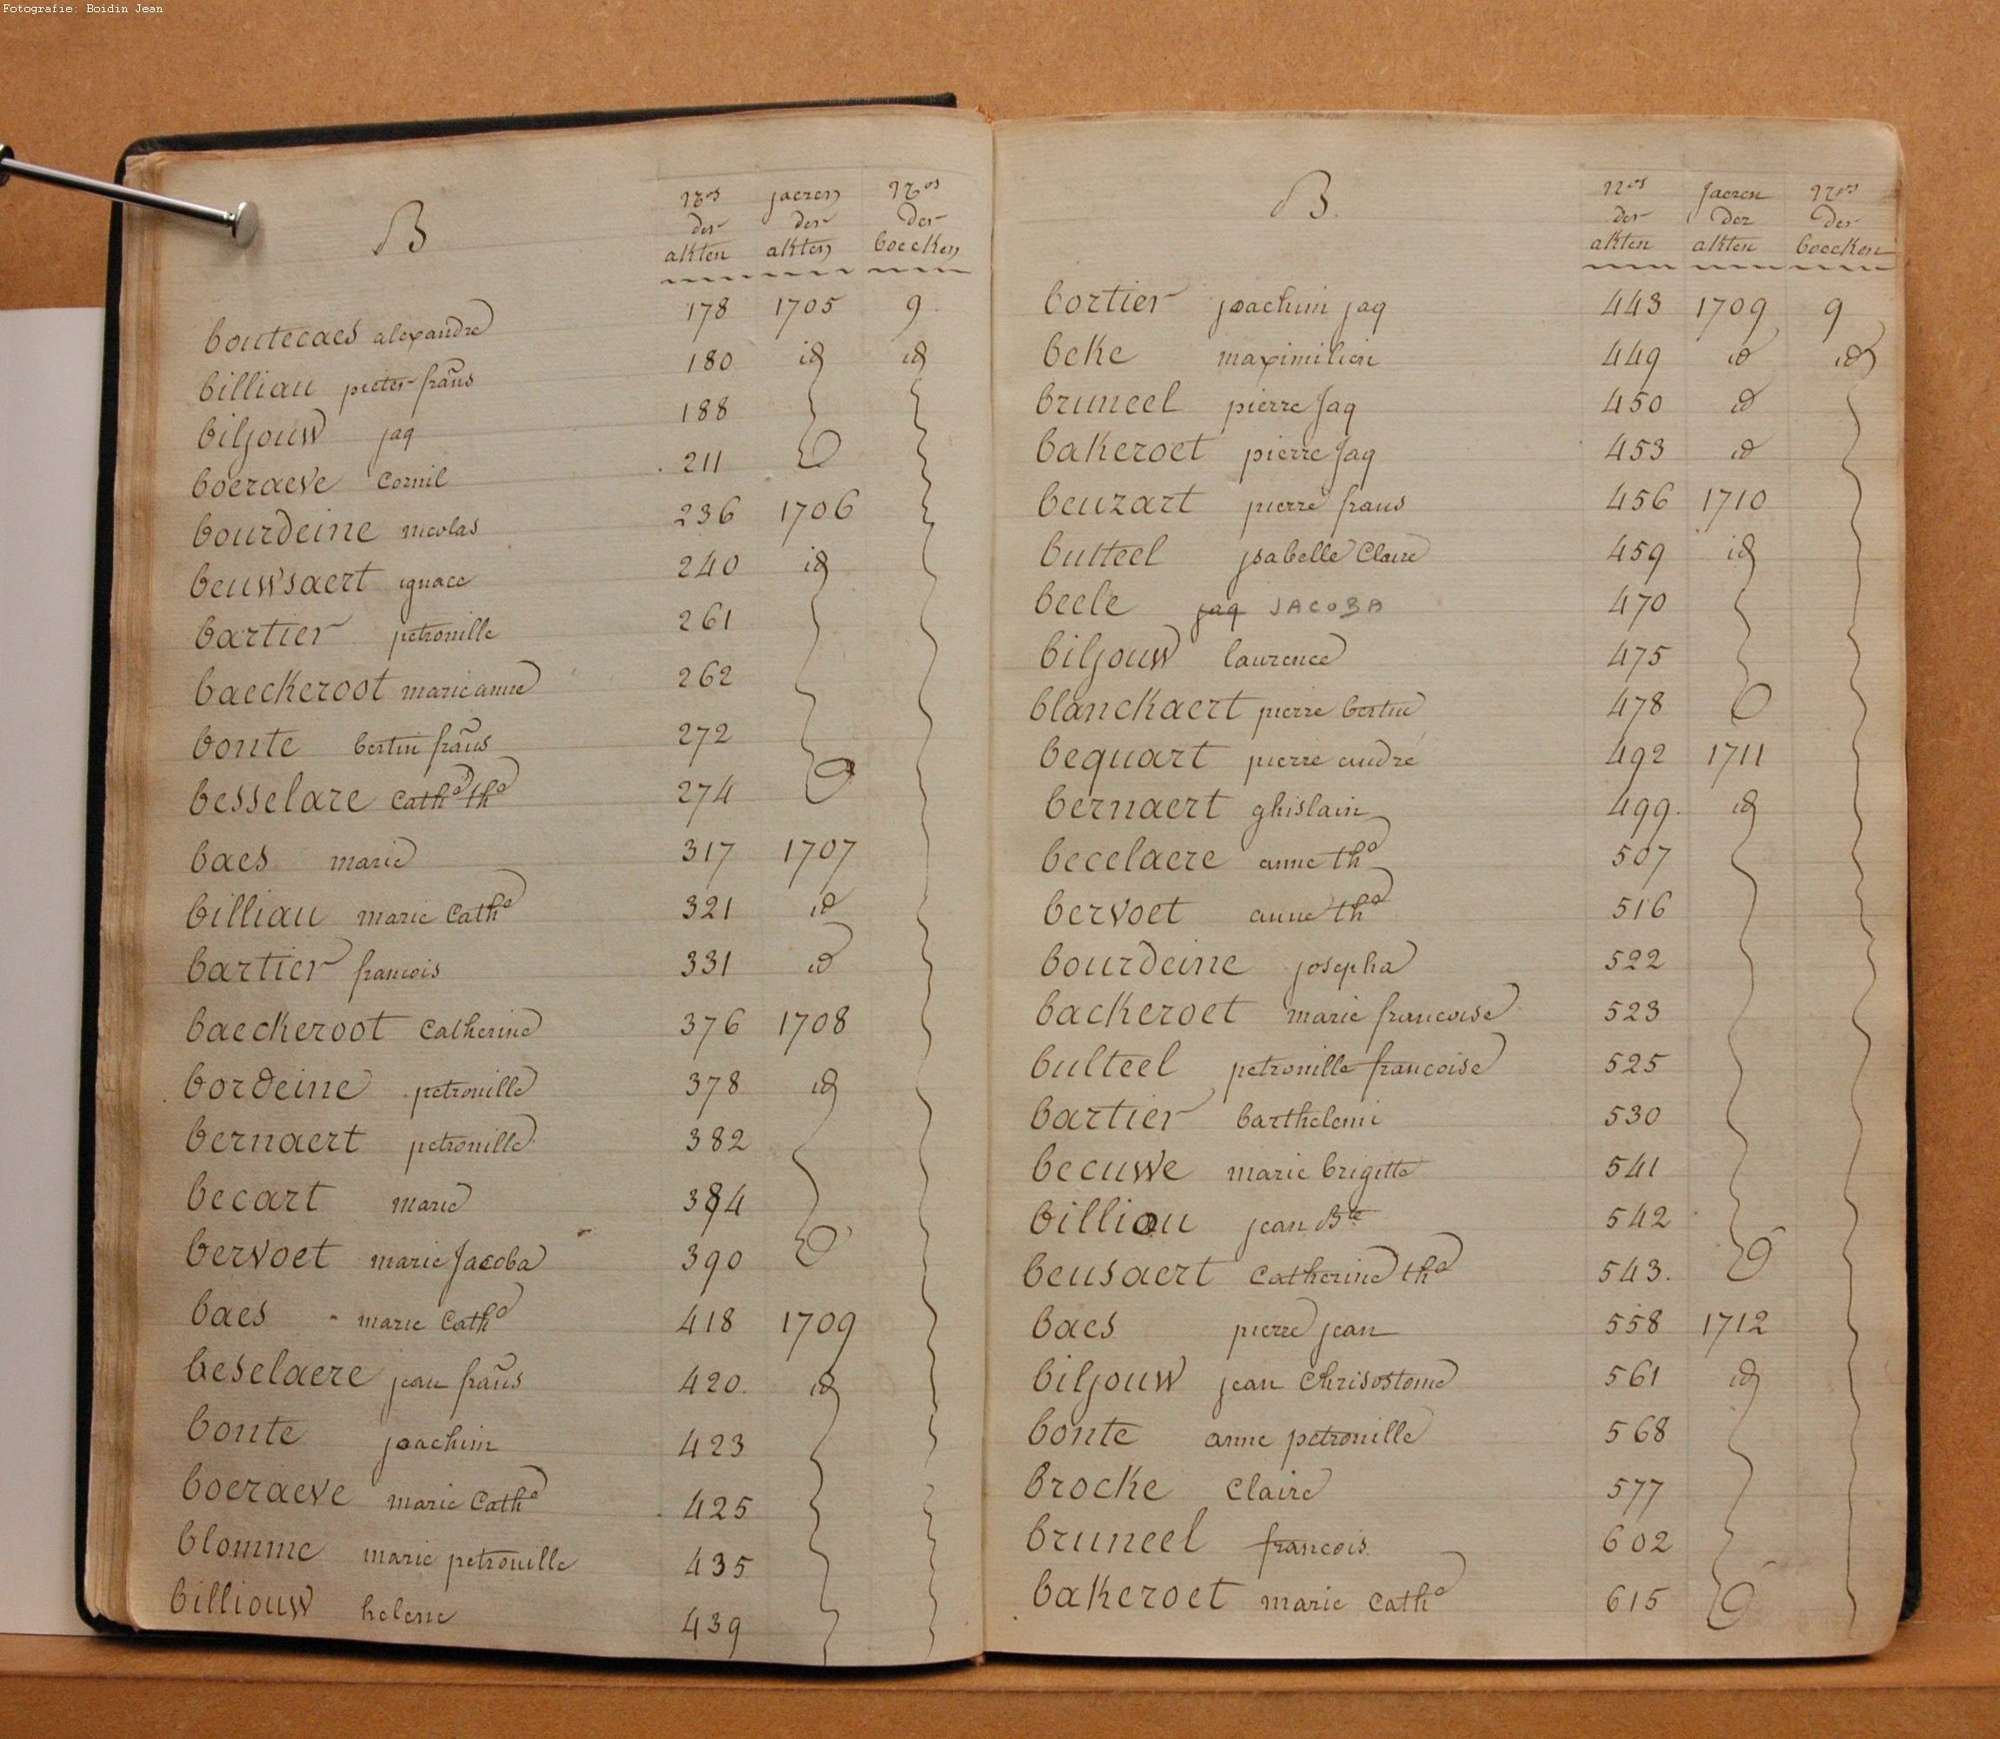 Fotografie: Boidin Jean
B
Nos der akten
jaeren der akten
Nos der boecken
boutecaes alexandre 178 1705 9.
billiau pieter frans 180 id id
biljouw jaq 188
boeraeve Cornil 211
bourdeine nicolas 236 1706
beuwsaert ignace 240 id
bartier petronille 261
baeckeroot marie anne 262
bonte bertin frans 272
besselare Cathe the 274
baes marie 317 1707
billiau marie Cathe 321 id
bartier francois 331 id
baeckeroot Catherine 376 1708
bordeine petronille 378 id
bernaert petronille 382
becart marie 384
bervoet marie Jacoba 390
baes marie Cathe 418 1709
beselaere jean frans 420 id
bonte joachim 423
boeraeve marie Cathe 425
blomme marie petronille 435
billiouw helene 439
B.
Nos der akten
Jaeren der akten
Nos der boecken
bortier joachim jaq 443 1709 9
beke maximilien 449 id id
bruneel pierre Jaq 450 id
bakeroet pierre Jaq 453 id
beuzart pierre frans 456 1710
bulteel jsabelle Claire 459 id
beele jaq JACOBA 470
biljouw laurence 475
blanckaert pierre bertin 478
bequart pierre andré 492 1711
bernaert ghislain 499. id
becelaere anne the 507
bervoet anne the 516
bourdeine josepha 522
backeroet marie francoise 523
bulteel petronille francoise 525
bartier barthelemi 530
becuwe marie brigitte 541
billiou jean Bte 542
beusaert Catherine the 543.
baes pierre jean 558 1712
biljouw jean Chrisostome 561 id
bonte anne petronille 568
brocke Claire 577
bruneel francois 602
bakeroet marie Cathe 615